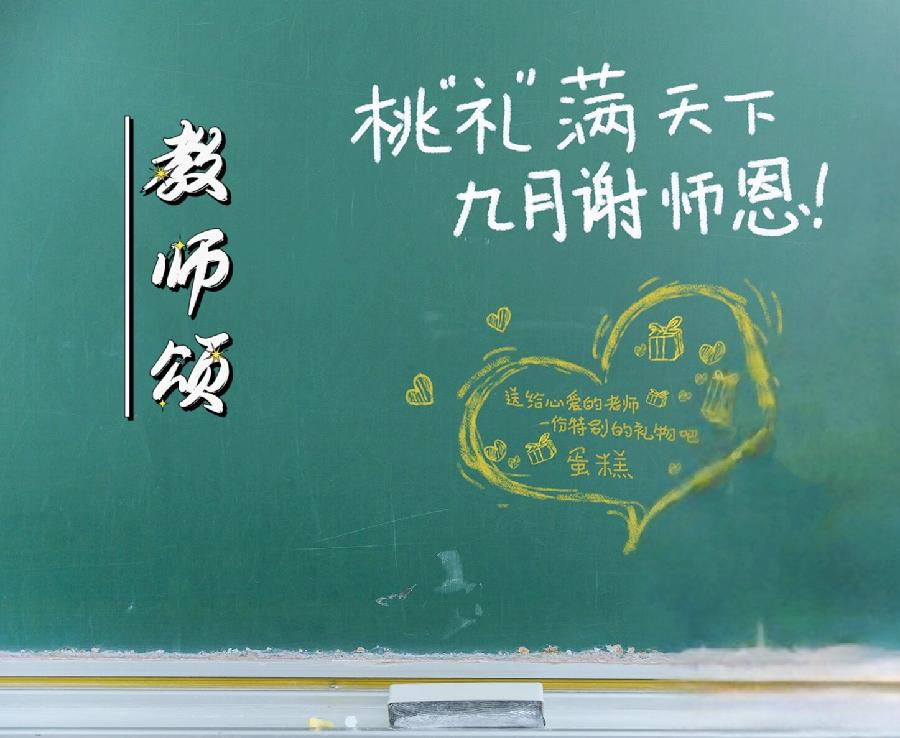 教师颂
桃"礼"满天下
九月谢师恩!
送给心爱的老师
一份特别的礼物吧
蛋糕